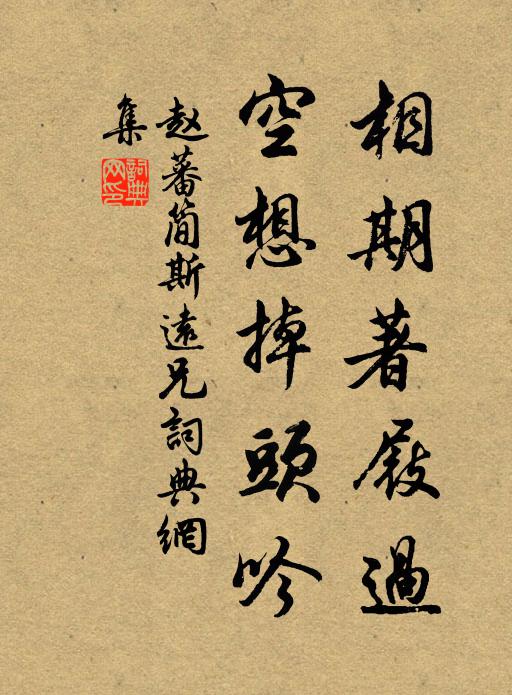 相期著屐過
空想掉頭吟
赵蕃簡斯遠兄詞典網
集
詞典
网印